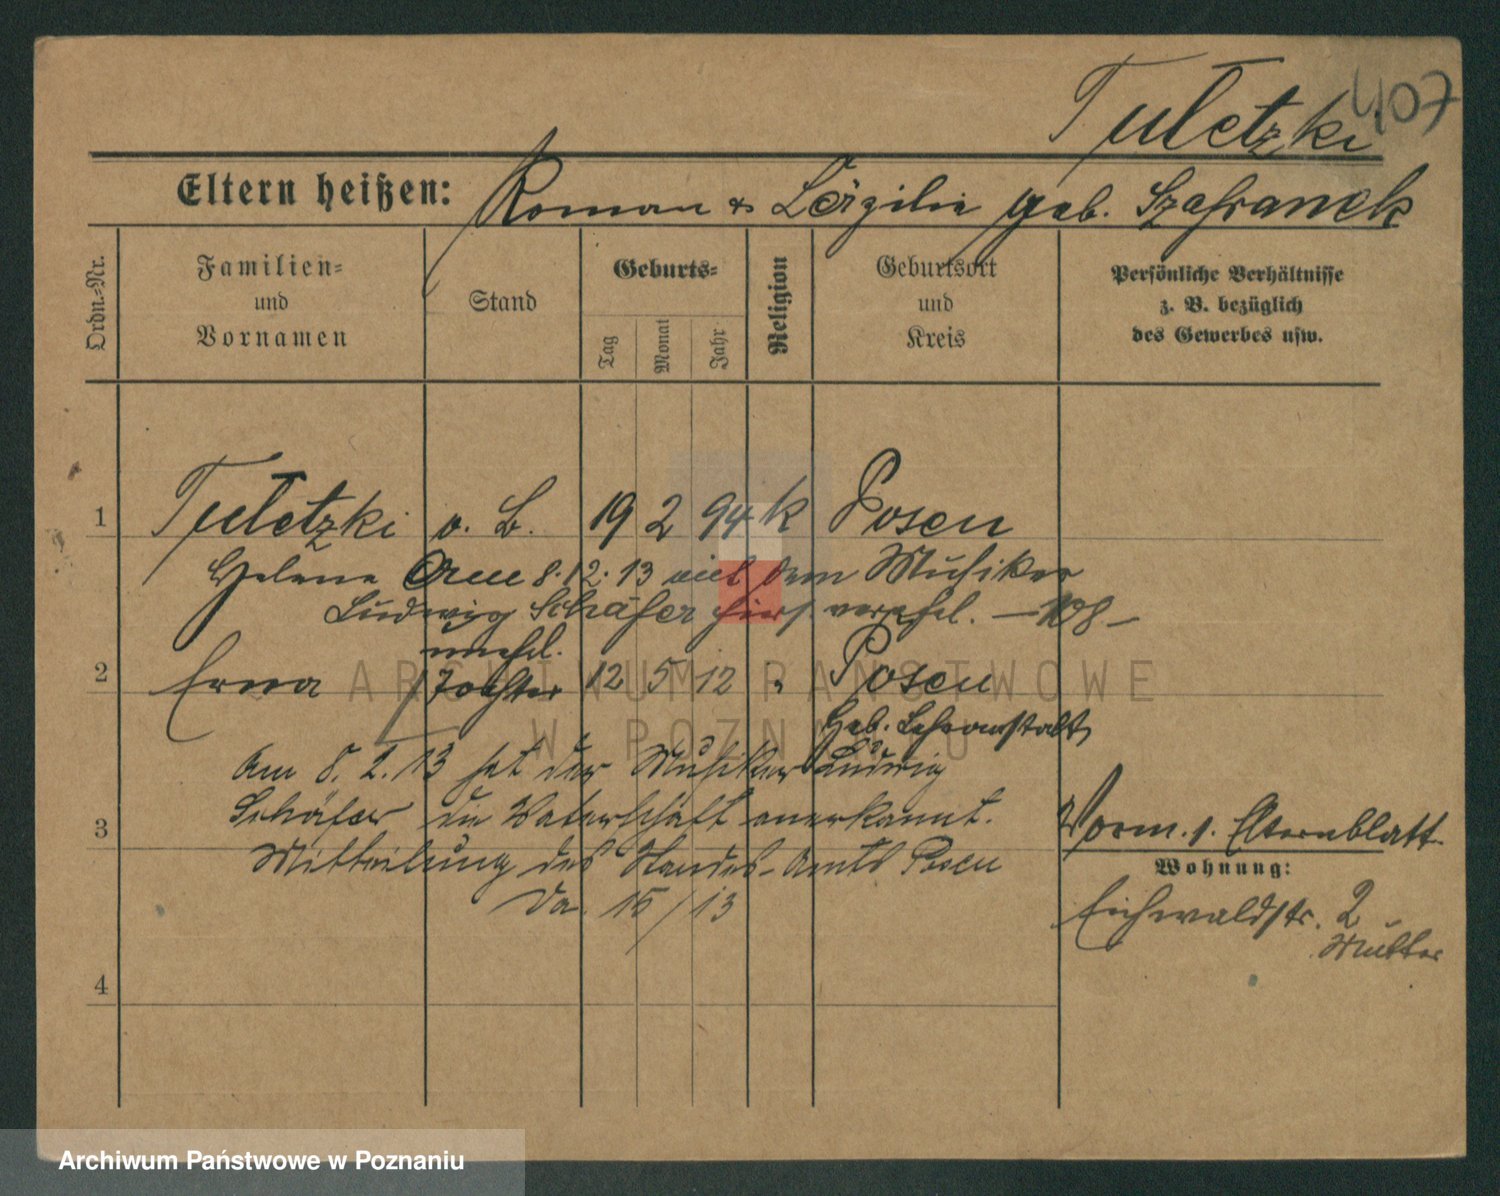 407
Tuletzki
Eltern heißen: Roman & Cäzilie geb. Szafranek
Ordn.-Nr.
Familien-
und
Vornamen
Stand
Geburts-
Tag
Monat
Jahr
Religion
Geburtsort
und
Kreis
Persönliche Verhältnisse
z. B. bezüglich
des Gewerbes usw.
1 Tuletzki o. B. 19 2 94 k Posen
Helene Am 8.12.13 mit dem Musiker
Ludwig Schäfer hier verehel. — 108 —
unehel.
2 Erna Tochter 12 5 12 " Posen
Heb. Lehranstalt
Am 8. 2. 13 hat der Musiker Ludwig
3 Schäfer die Vaterschaft anerkannt.
Mitteilung des Standes-Amts Posen
15/13
4
Vorm. s. Elternblatt
Wohnung:
Eichwaldstr. 2
Mutter
ARCHIWUM PAŃSTWOWE
W POZNANIU
Archiwum Państwowe w Poznaniu